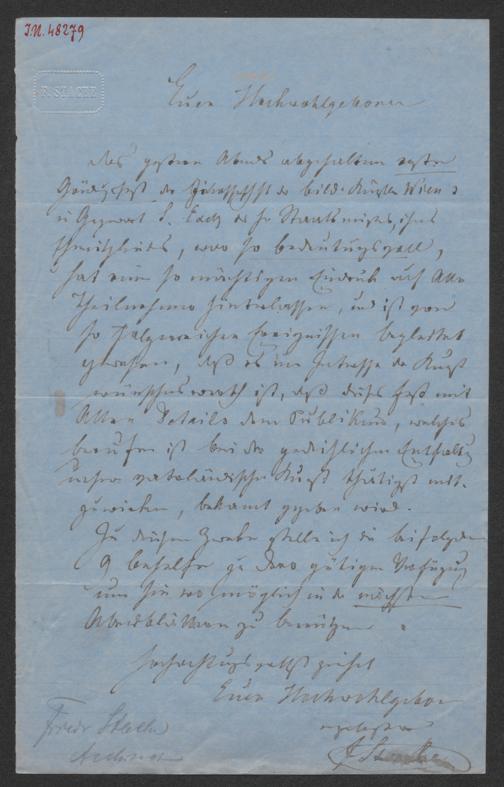 I.N. 48279
F. STACHE
Euer Hochwohlgeboren
das gestern Abends abgehaltene erste
Gründungsfest der Genossenschft der bild. Künstler Wiens
in Gegenwart S. Exc. des H. Staatsministers, ihres
Ehrenmitgliedes, war so bedeutungsvoll,
hat einen so mächtigen Eindruck auf Alle
Theilnehmer hinterlassen, und ist von
so folgenreichen Ereignissen begleitet
gewesen, daß es im Intresse der Kunst
wünschenswerth ist, daß dieses Fest mit
Allen Details dem Publikum, welches
berufen ist bei der gedeihlichen Entfaltung
unserer vaterländischen Kunst thätigst mit-
zuwirken, bekannt gegeben wird.
Zu diesem Zwecke stelle ich die beifolgenden
9 Behelfe zu dero gütigen Verfügung
um sie wo möglich in den nächsten
Abendblättern zu benützen.
Hochachtungsvollst zeichnet
Euer Hochwohlgeboren
ergebenster
F Stache
Friedr Stache
Architect